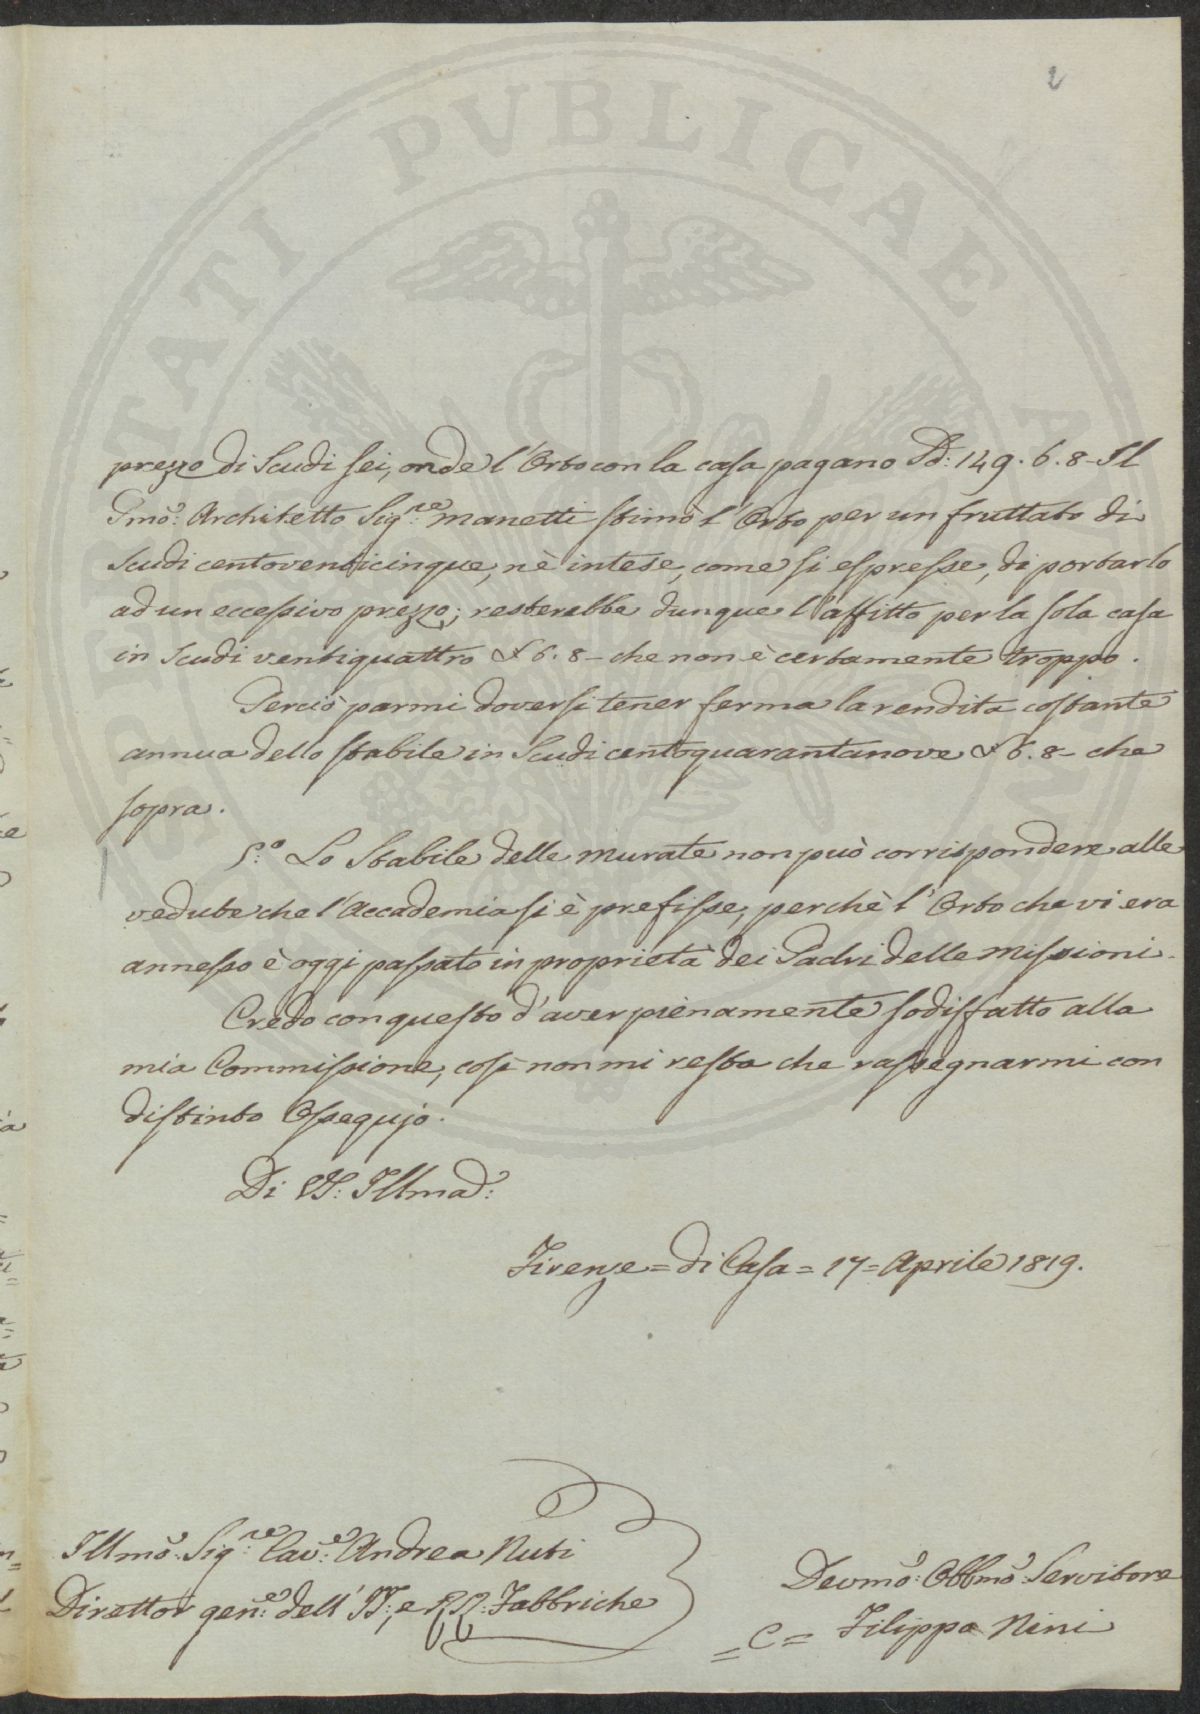 2
UTILITATI PUBLICAE
prezzo di Scudi sei, onde l'Orto con la casa pagano Sd: 149. 6. 8 - Il
Pmõ: Architetto Sig:re Manetti stimò l'Orto per un fruttato di
Scudi centoventicinque, nè intese, come si espresse, di portarlo
ad un eccessivo prezzo; resterebbe dunque l'affitto per la sola casa
in Scudi ventiquattro £ 6. 8 - che non è certamente troppo.
Perciò parmi doversi tener ferma la rendita costante
annua dello stabile in Scudi centoquarantanove £ 6. 8 - che
sopra.
5:o Lo Stabile delle Murate non può corrispondere alle
vedute che l'Accademia si è prefisse, perchè l'Orto che vi era
annesso è oggi passato in proprietà dei Padri delle Missioni.
Credo con questo d'aver pienamente sodisfatto alla
mia Commissione, così non mi resta che rassegnarmi con
distinto Ossequjo.
Di VS: Illma:
Firenze = di Casa = 17 = Aprile 1819.
Illmõ: Sig:re Cav:e Andrea Nuti
Direttor gen:e dell' II; e RR: Fabbriche
Devmõ: Obbmõ: Servitore
= C = Filippo Nini